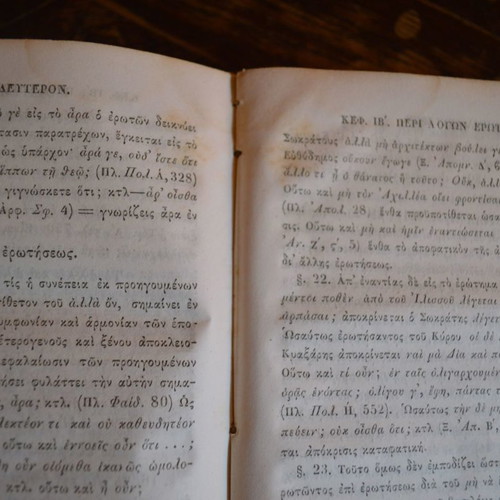 ΔΕΥΤΕΡΟΝ.
γέ εἰς τὸ ἆρα ὁ ἐρωτῶν δεικνύει
τασιν παρατρέχων, ἔγκειται εἰς τὸ
ὡς ὑπάρχον· ἆρά γε, οὐδ' ἴστε ὅτι
ἵππων τῇ Θεῷ; (Πλ. Πολ. Α, 328)
γιγνώσκετε ὅτι; κτλ—ἆρ' οἶσθα
(Ἀρφ. Σφ. 4) = γνωρίζεις ἆρα ἐν
ἐρωτήσεως.
τίς ἡ συνέπεια ἐκ προηγουμένων
τίθετον τοῦ ἀλλὰ ὄν, σημαίνει ἐν
υμφωνίαν καὶ ἁρμονίαν τῶν ἑπο-
ἑτερογενοῦς καὶ ξένου ἀποκλειο-
κεφαλαίωσιν τῶν προηγουμένων
ήσει φυλάττει τὴν αὐτὴν σημα-
, ἆρα; κτλ. (Πλ. Φαίδ. 80) Ὡς
λεκτέον τι καὶ οὐ καθευδητέον
οὕτω καὶ ἐννοεῖς οὖν ὅτι . . . ;
δὴ οὖν οἰόμεθα ἱκανῶς ὡμολο-
κτλ. καὶ ἦ οὖν;
ΚΕΦ. ΙΒ'. ΠΕΡΙ ΛΟΓΩΝ
Σωκράτους ἀλλὰ μὴ ἀρχιτέκτων βούλει
Εὐθύδημος οὔκουν ἔγωγε (Ξ. Ἀπομν. Δ',
ἀλλὸ τι ἢ ὁ θάνατος ἢ τοῦτο; Οὐκ, ἀλλ
Οὕτω καὶ μὴ τὸν Ἀχιλλέα οἴει φροντίσαι
(Πλ. Ἀπολ. 28), ἔνθα προϋποτίθεται
σις. Οὕτω καὶ μὴ καὶ ἡμῖν ἐναντιώσεται
Ἀν. ζ', ς', 5) ἔνθα τὸ ἀποφατικὸν τῆς
δι' ἄλλης ἐρωτήσεως.
§. 22. Ἀπ' ἐναντίας δὲ εἰς τὸ ἐρώτημα
μέντοι ποθὲν ἀπὸ τοῦ Ἰλισσοῦ λέγεται
ἁρπάσαι; ἀποκρίνεται ὁ Σωκράτης λέγεται
Ὡσαύτως ἐρωτήσαντος τοῦ Κύρου οἱ δὲ
Κυαξάρης ἀποκρίνεται ναὶ μὰ Δία καὶ
Οὕτω καὶ τί οὖν; ἐν ταῖς ὀλιγαρχουμέν
ὁρᾷς ἐνόντας; ὀλίγου γ', ἔφη, πάντας
(Πλ. Πολ. Η, 552). Ὡσαύτως τὴν δὲ
πεύειν; οὐκ οἶσθα ὅτι; κτλ (Ξ. Ἀπ. Β',
ται ἀπόκρισις καταφατική.
§. 23. Τοῦτο ὅμως δὲν ἐμποδίζει ὥστε
ρωτῶντος ἐπὶ ἐρωτήσεως διὰ τοῦ μὴ